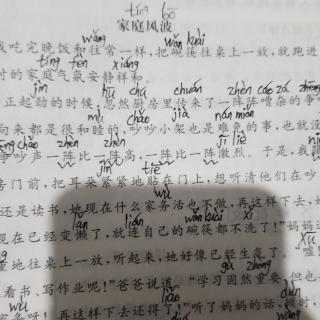 tíng bō
家庭风波
wǎng wǎn kuài
我吃完晚饭和往常一样,把碗筷往桌上一放,就跑进
tíng fēn xiáng
时的家庭气氛安静祥和。
jìn hū chú chuán zhèn cáo zá zhēng
正起劲的时候,忽然厨房里传来了一阵阵嘈杂的争
mù chǎo jià nán miǎn
向来都是很和睦的,吵吵小架也是难免的事,也就没
chǎo zhèn zhèn jī liè
争吵声一阵比一阵高,一阵比一阵激烈。于是,我
jǐn tiē
房门前,把耳朵紧紧地贴在门上,想听清他们在吵
wù
还是读书,她现在什么家务活也不做,再这样下去
lǎn lián wǎn kuài xǐ
现在已经变懒了,就连自己的碗筷都不洗了!”妈妈
xū
重地往桌上一放,听起来,她好像已经生气了。“嘘
gù zhòng
看书、写作业呢!”爸爸说道,“学习固然重要,但
wù liǎo dùn
家务呀!再这样下去还得了!”听了妈妈的话,顿时,